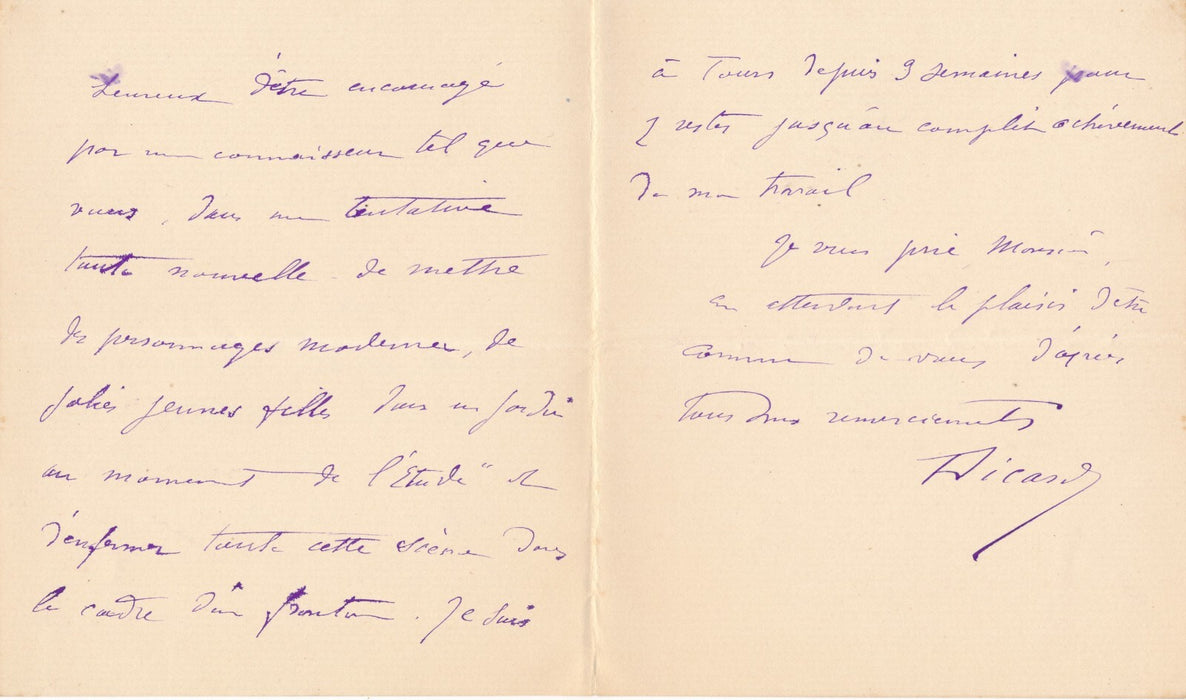 heureux d'être encouragé
par un connaisseur tel que
vous, dans une tentative
toute nouvelle de mettre
des personnages modernes, de
jolies jeunes filles dans un jardin
au moment de l'Etude" et
d'enfermer toute cette scène dans
le cadre d'un fronton. Je suis
à Tours depuis 3 semaines pour
y rester jusqu'au complet achèvement
de mon travail
Je vous prie, Monsieur,
en attendant le plaisir d'être
connu de vous d'agréer
tous mes remerciements
Sicard